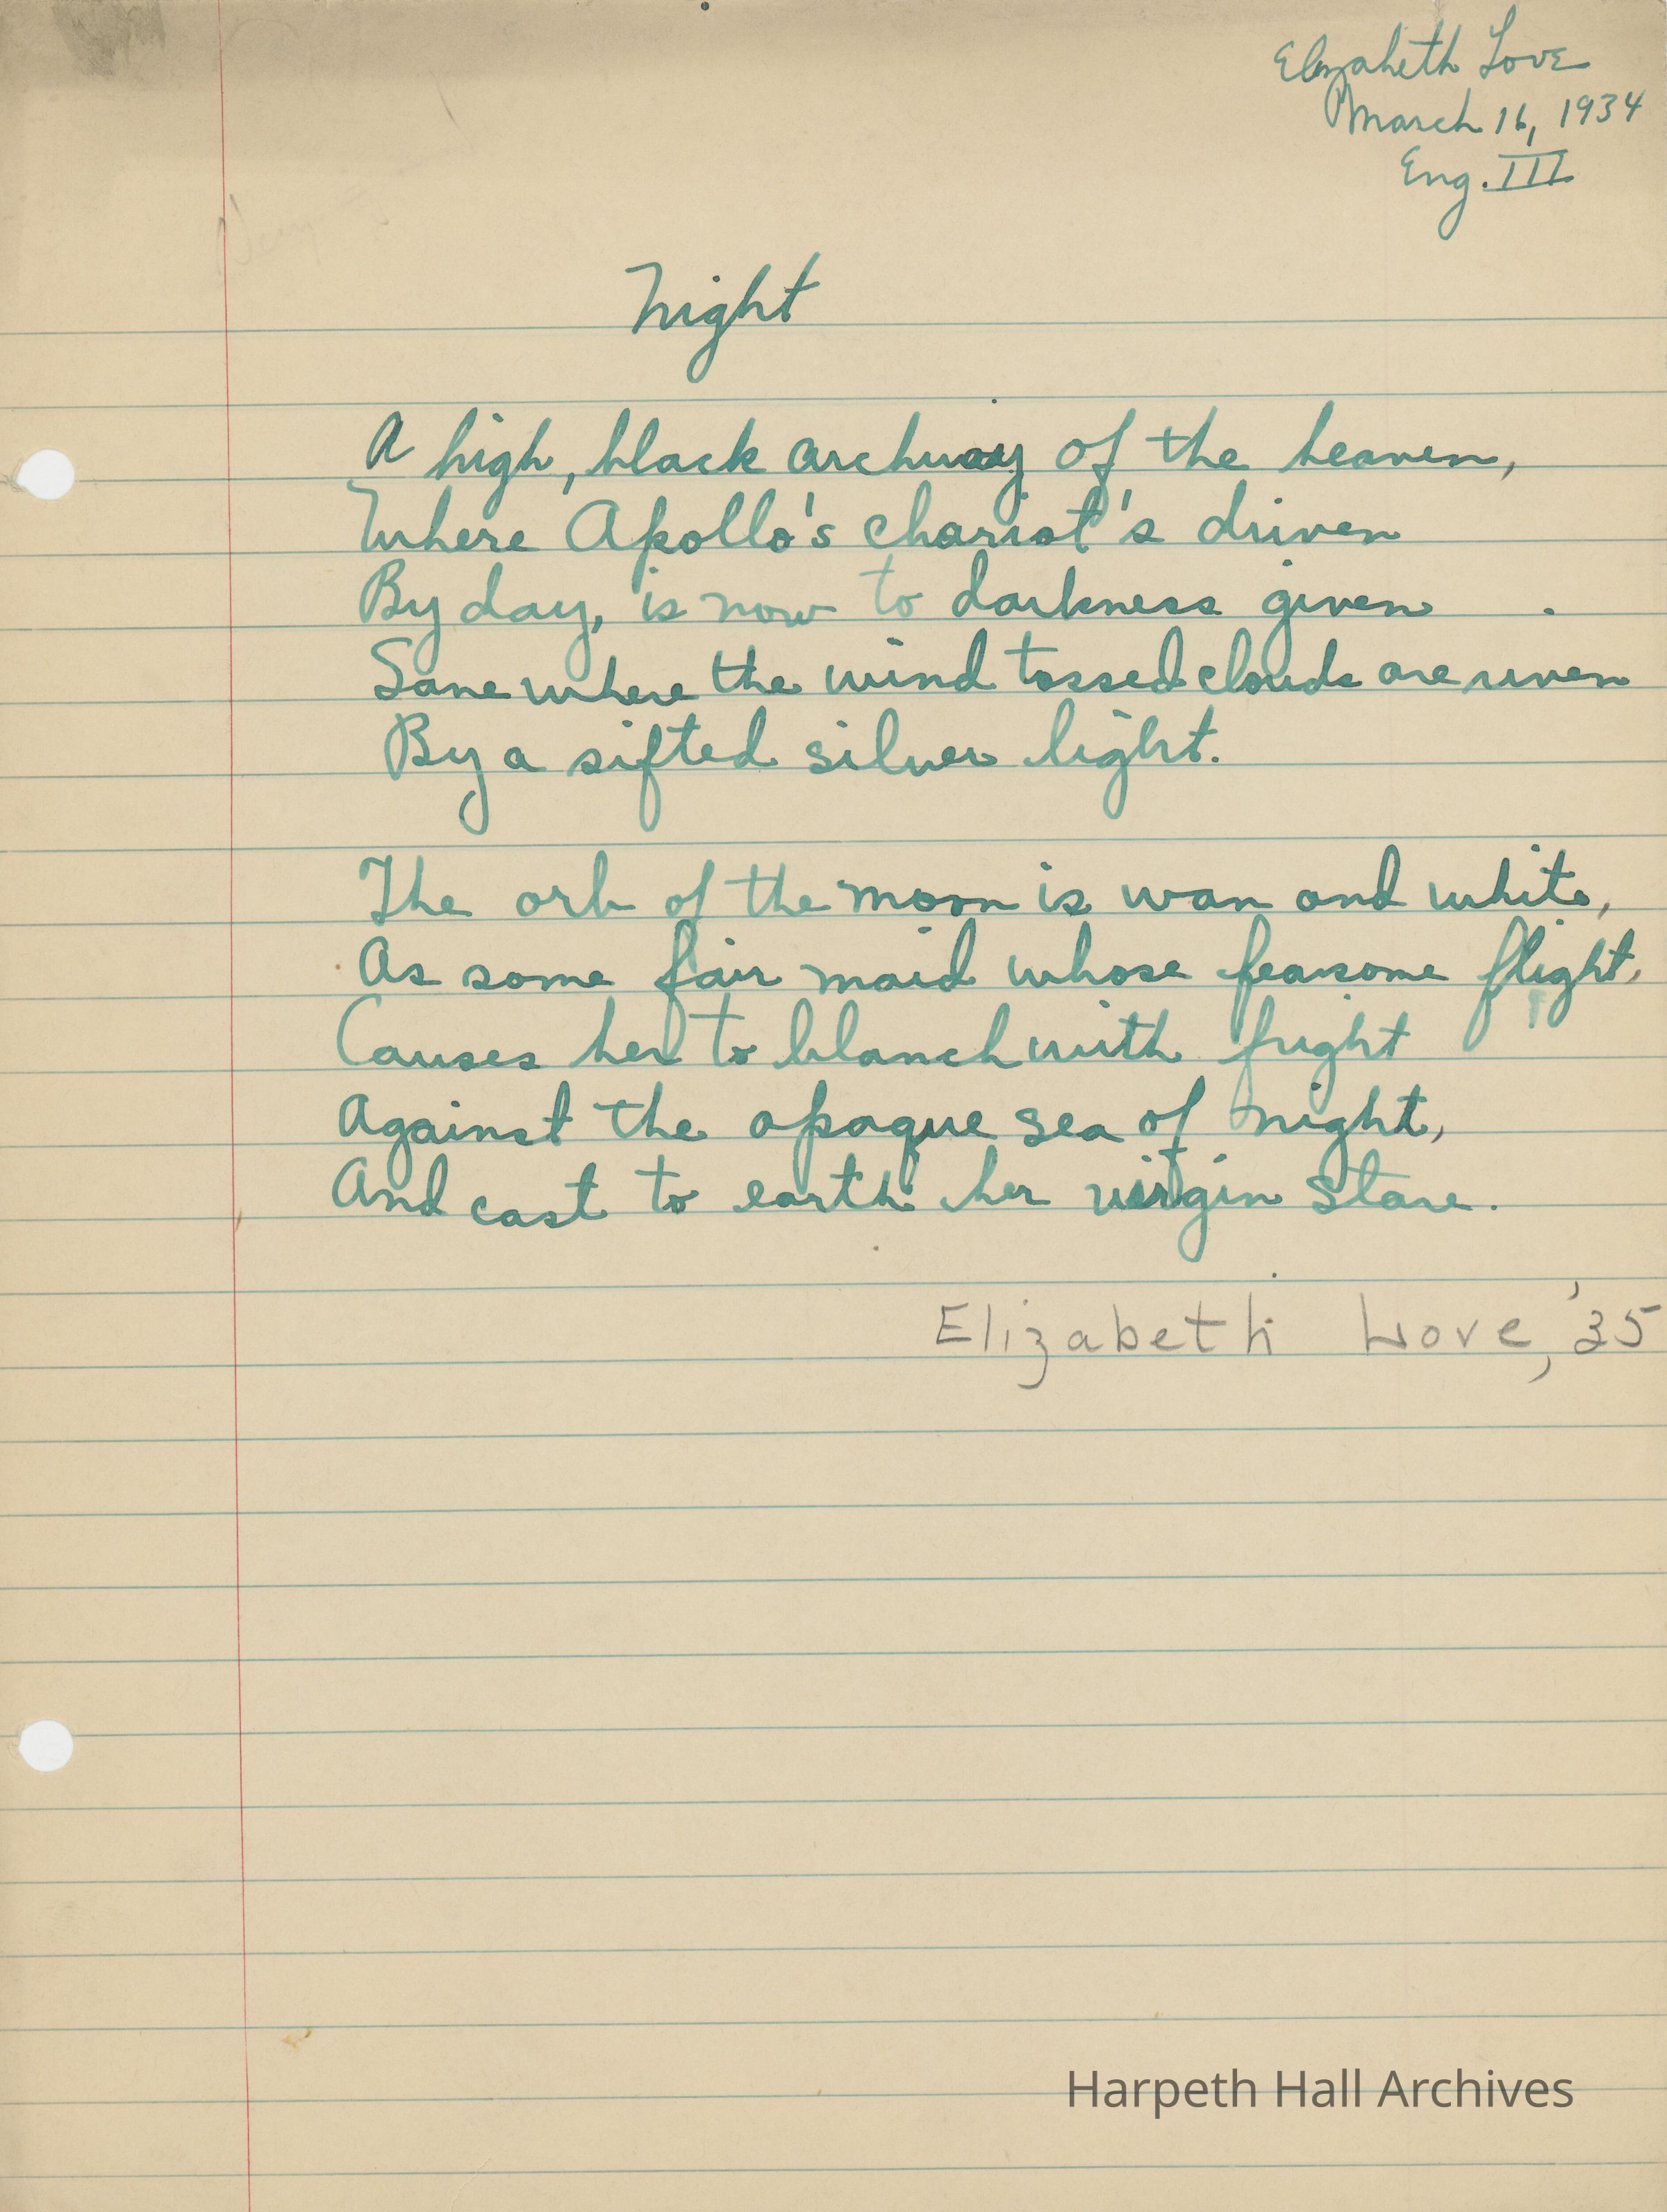 Elizabeth Love
March 16, 1934
Eng. III
Night
A high, black archway of the heaven,
Where Apollo's chariot's driven
By day, is now to darkness given
Save where the wind tossed clouds are riven
By a sifted silver light.
The orb of the moon is wan and white,
As some fair maid whose fearsome flight,
Causes her to blanch with fright
Against the opaque sea of night,
And cast to earth her virgin stare.
Elizabeth Love, '35
Harpeth Hall Archives